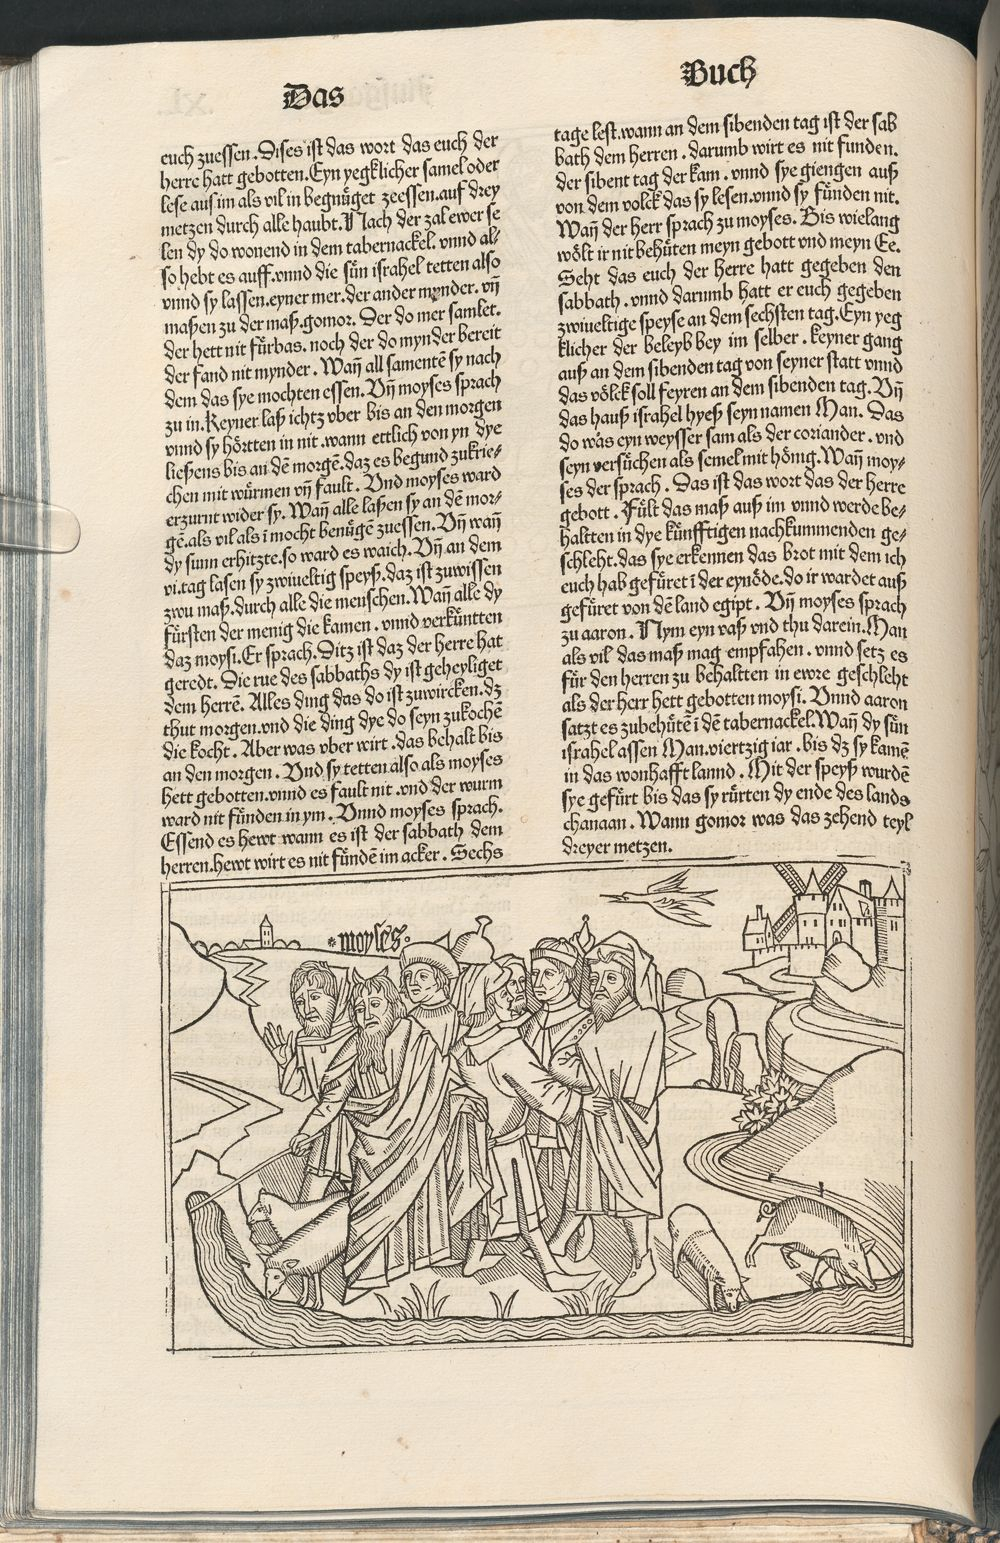 Das
Buch
euch zuessen. Dises ist das wort das euch der
herre hatt gebotten. Eyn yegklicher samel oder
lese aus im als vil in begnuͤget zeessen. auf drey
metzen durch alle haubt. Nach der zal ewer se
len dy do wonend in dem tabernackel. vnnd al⸗
so hebt es auff. vnnd die suͤn israhel tetten also
vnnd sy lassen. eyner mer. der ander mynder. vñ
maßen zu der maß. gomor. Der do mer samlet.
der hett nit fuͤrbas. noch der do mynder bereit
der fand nit mynder. Wañ all samentẽ sy nach
dem das sye mochten essen. Vñ moyses sprach
zu in. Keyner laß ichtz vber bis an den morgen
vnnd sy hoͤrtten in nit. wann ettlich von yn dye
ließens bis an dẽ morgẽ. daz es begund zukrie⸗
chen mit wuͤrmen vñ fault. Vnd moyses ward
erzurnt wider sy. Wañ alle laßen sy an dẽ mor⸗
gẽ. als vil als ĩ mocht benuͤgẽ zuessen. Vñ wañ
dy sunn erhitzte. so ward es waich. Vñ an dem
vi. tag lasen sy zwiueltig speyß. daz ist zuwissen
zwu maß. durch alle die menschen. Wañ alle dy
fuͤrsten der menig die kamen. vnnd verkuͤntten
daz moysi. Er sprach. Ditz ist daz der herre hat
geredt. Die rue des sabbaths dy ist geheyliget
dem herrẽ. Alles ding das do ist zuwircken. dz
thut morgen. vnd die ding dye do seyn zukochẽ
die kocht. Aber was vber wirt. das behalt bis
an den morgen. Vnd sy tetten also als moyses
hett gebotten. vnnd es fault nit. vnd der wurm
ward nit fuͤnden in ym. Vnnd moyses sprach.
Essend es hewt wann es ist der sabbath dem
herren. hewt wirt es nit fuͤndẽ im acker. Sechs
tage lest. wann an dem sibenden tag ist der sab
bath dem herren. darumb wirt es nit funden.
der sibent tag der kam. vnnd sye giengen auß
von dem volck das sy lesen. vnnd sy fuͤnden nit.
Wañ der herr sprach zu moyses. Bis wielang
woͤlt ir nit behuͤten meyn gebott vnd meyn Ee.
Seht das euch der herre hatt gegeben den
sabbath. vnnd darumb hatt er euch gegeben
zwiueltige speyse an dem sechsten tag. Eyn yeg
klicher der beleyb bey im selber. keyner gang
auß an dem sibenden tag von seyner statt vnnd
das voͤlck soll feyren an dem sibenden tag. Vñ
das hauß israhel hyeß seyn namen Man. Das
do was eyn weysser sam als der coriander. vnd
seyn versuͤchen als semel mit hoͤnig. Wañ moy⸗
ses der sprach. Das ist das wort das der herre
gebott. Fuͤlt das maß auß im vnnd werde be⸗
haltten in dye kuͤnfftigen nachkummenden ge⸗
schleht. das sye erkennen das brot mit dem ich
euch hab gefuͤret ĩ der eynoͤde. do ir wardet auß
gefuͤret von dẽ land egipt. Vñ moyses sprach
zu aaron. Nym eyn vaß vnd thu darein. Man
als vil das maß mag empfahen. vnnd setz es
fuͤr den herren zu behaltten in ewre geschleht
als der herr hett gebotten moysi. Vnnd aaron
satzt es zubehuͤtẽ ĩ dẽ tabernackel. Wañ dy suͤn
israhel assen Man. viertzig iar. bis dz sy kamẽ
in das wonhafft lannd. Mit der speyß wurdẽ
sye gefuͤrt bis das sy ruͤrten dy ende des lands
chanaan. Wann gomor was das zehend teyl
dreyer metzen.
moyses